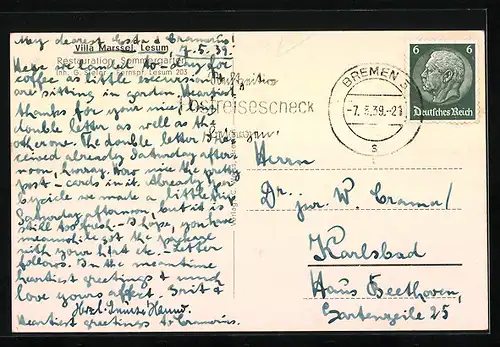 My dearest Esda & Cramerus!
Villa Marssel, Lesum
7.5.39.
Restauration Sommergarten
Inh. G. Stelgr Fernspr. Lesum 203
Here we landed to-day for
coffee as little excursion &
are sitting in garden. Heartiest
thanks for your nice long
double letter as well as the
other one. The double letter I re-
ceived already Saturday after
noon, hurray. How nice the pretty
post-cards in it. Already per
bycicle we made a little trip
Saturday afternoon, but it is
still too fresh. I hope, you have
meanwhile got the packet
with your hat etc. Letter
follows. In the meantime
heartiest greetings & much
love yours affect. Grit &
Herzl.
Heartiest greetings to Cramerus.
Postreisescheck
BREMEN 5
-7.5.39.-21
s
6 6
Deutsches Reich
Herrn
Dr. jur. W. Cramer/
Karlsbad
Haus Beethoven,
Gartenzeile 25